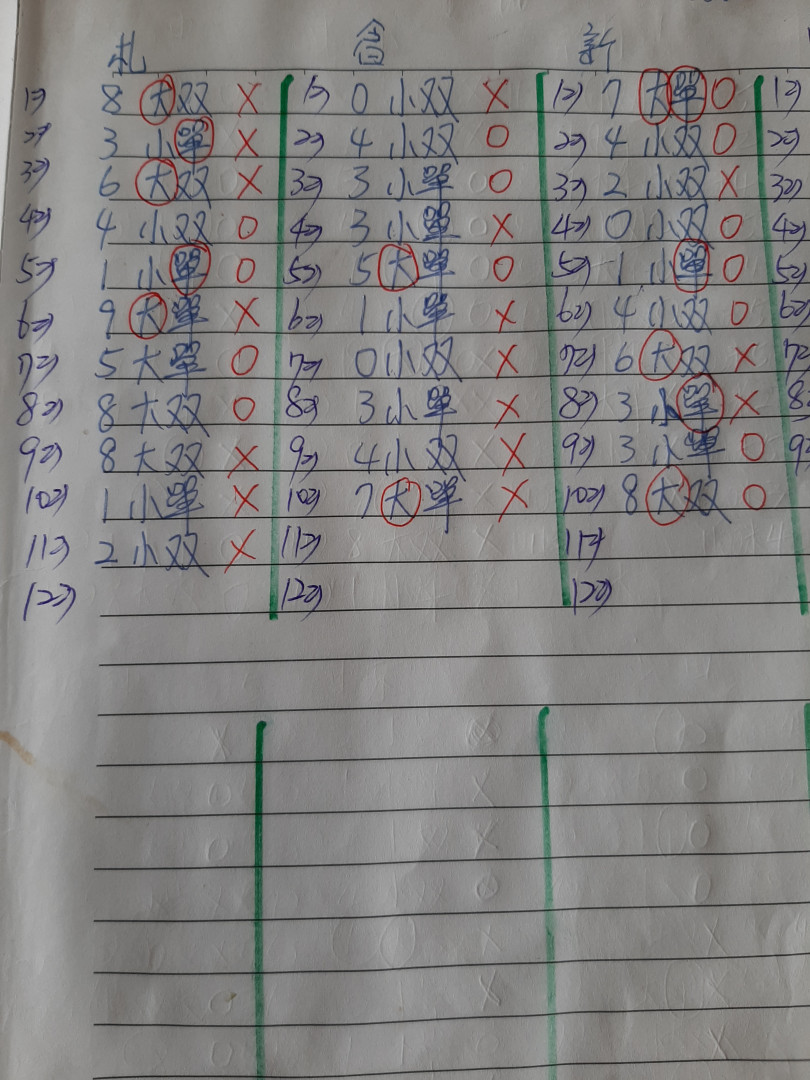 札 會 新
1) 8 大双 X 1) 0 小双 X 1) 7 大單 O 1)
2) 3 小單 X 2) 4 小双 O 2) 4 小双 O 2)
3) 6 大双 X 3) 3 小單 O 3) 2 小双 X 3)
4) 4 小双 O 4) 3 小單 X 4) 0 小双 O 4)
5) 1 小單 O 5) 5 大單 O 5) 1 小單 O 5)
6) 9 大單 X 6) 1 小單 X 6) 4 小双 O 6)
7) 5 大單 O 7) 0 小双 X 7) 6 大双 X 7)
8) 8 大双 O 8) 3 小單 X 8) 3 小單 X 8
9) 8 大双 X 9) 4 小双 X 9) 3 小單 O 9
10) 1 小單 X 10) 7 大單 X 10) 8 大双 O
11) 2 小双 X 11) 11)
12) 12) 12)